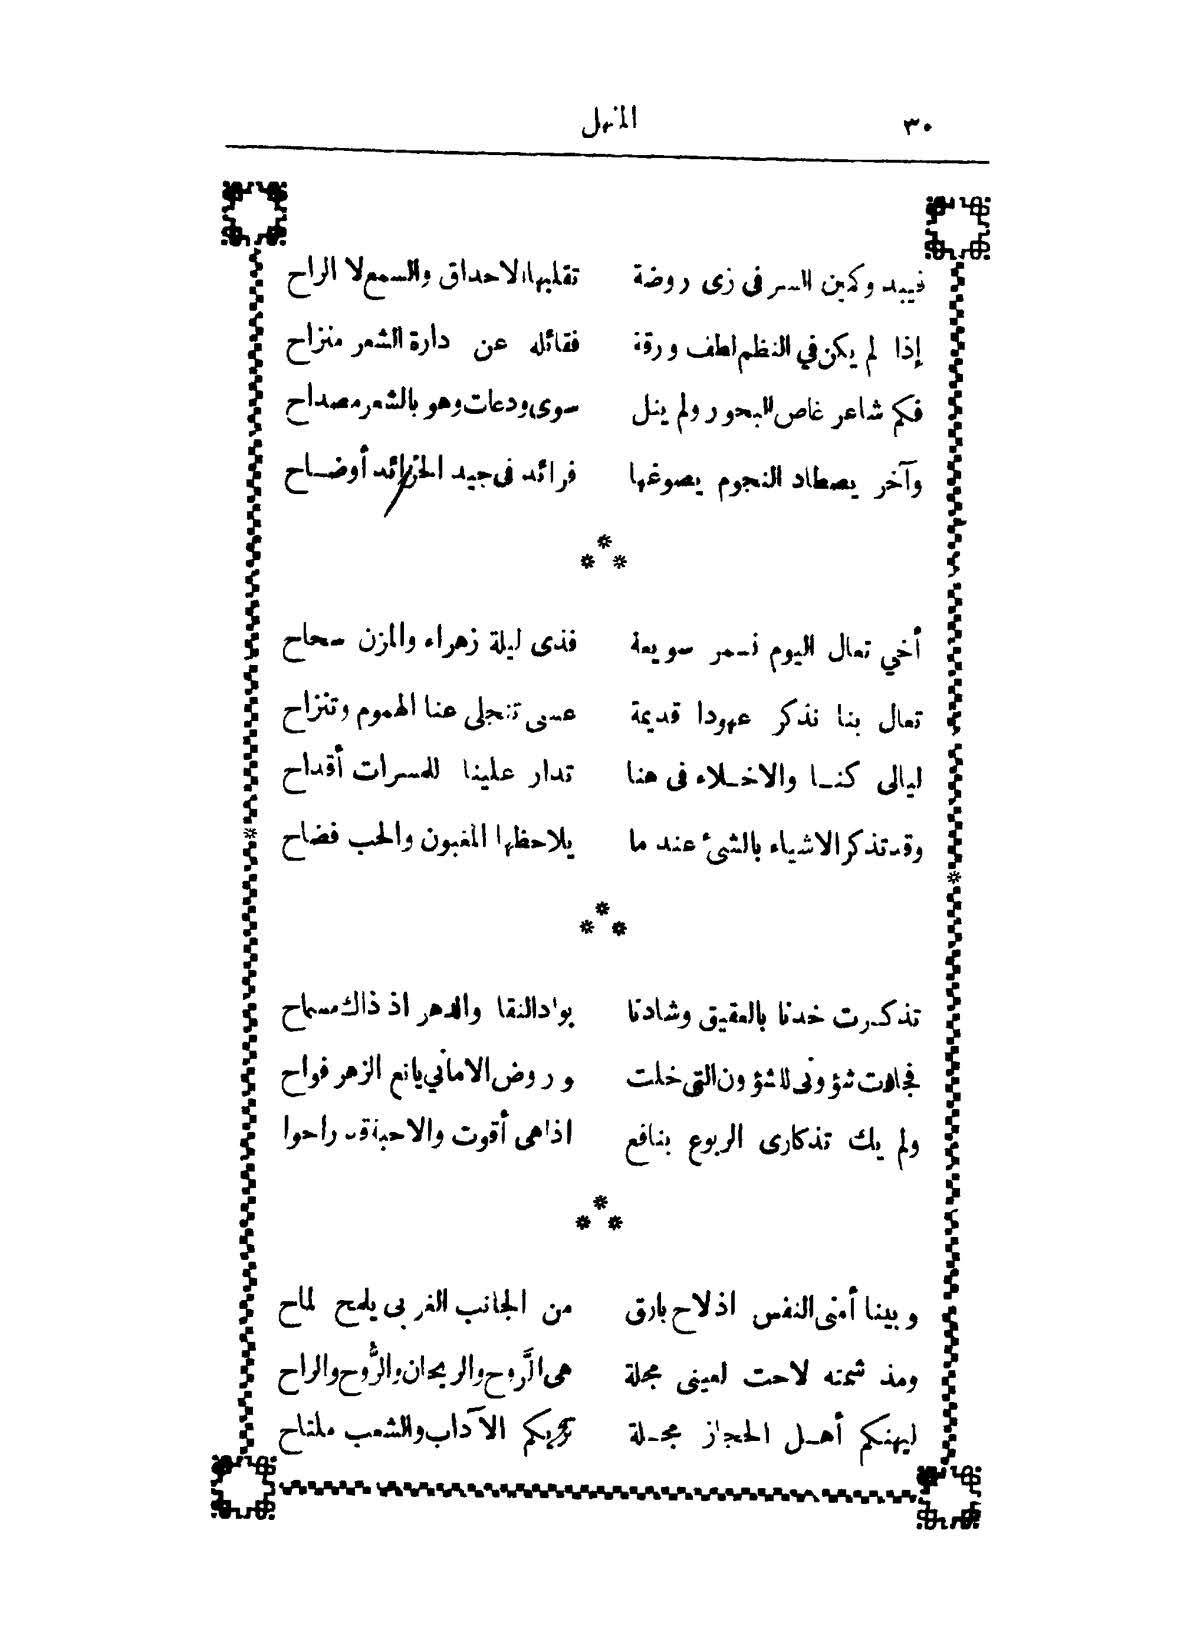 ٣٠ المنهل
فيبدو كمين السر فى زى روضة تقلبها الاحداق والسمع لا الراح
إذا لم يكن في النظم لطف ورقة فقائله عن دارة الشعر منزاح
فكم شاعر غاص البحور ولم ينل سوى ودعات وهو بالشعر مصداح
وآخر يصطاد النجوم يصوغها فرائد فى جيد الخرائد أوضاح
أخي تعال اليوم نسمر سويعة فذى ليلة زهراء والمزن سحاح
تعال بنا نذكر عهودا قديمة عسى تنجلى عنا الهموم وتنزاح
ليالى كنا والاخلاء فى هنا تدار علينا للمسرات أقداح
وقد تذكر الاشياء بالشىء عند ما يلاحظها المغبون والحب فضاح
تذكرت خدنا بالعقيق وشادنا بواد النقا والدهر اذ ذاك مسماح
فجاءت شؤونى للشؤون التى خلت وروض الاماني يانع الزهر فواح
ولم يك تذكارى الربوع بنافع اذا هى أقوت والاحبة قد راحوا
وبينا أمنى النفس اذ لاح بارق من الجانب الغربى يلمح لماح
ومذ شمته لاحت لعينى مجلة هى الَّروح والريحان والرُّوح والراح
ليهنكم أهل الحجاز مجلة تحييكم الآداب والشعب ملتاح